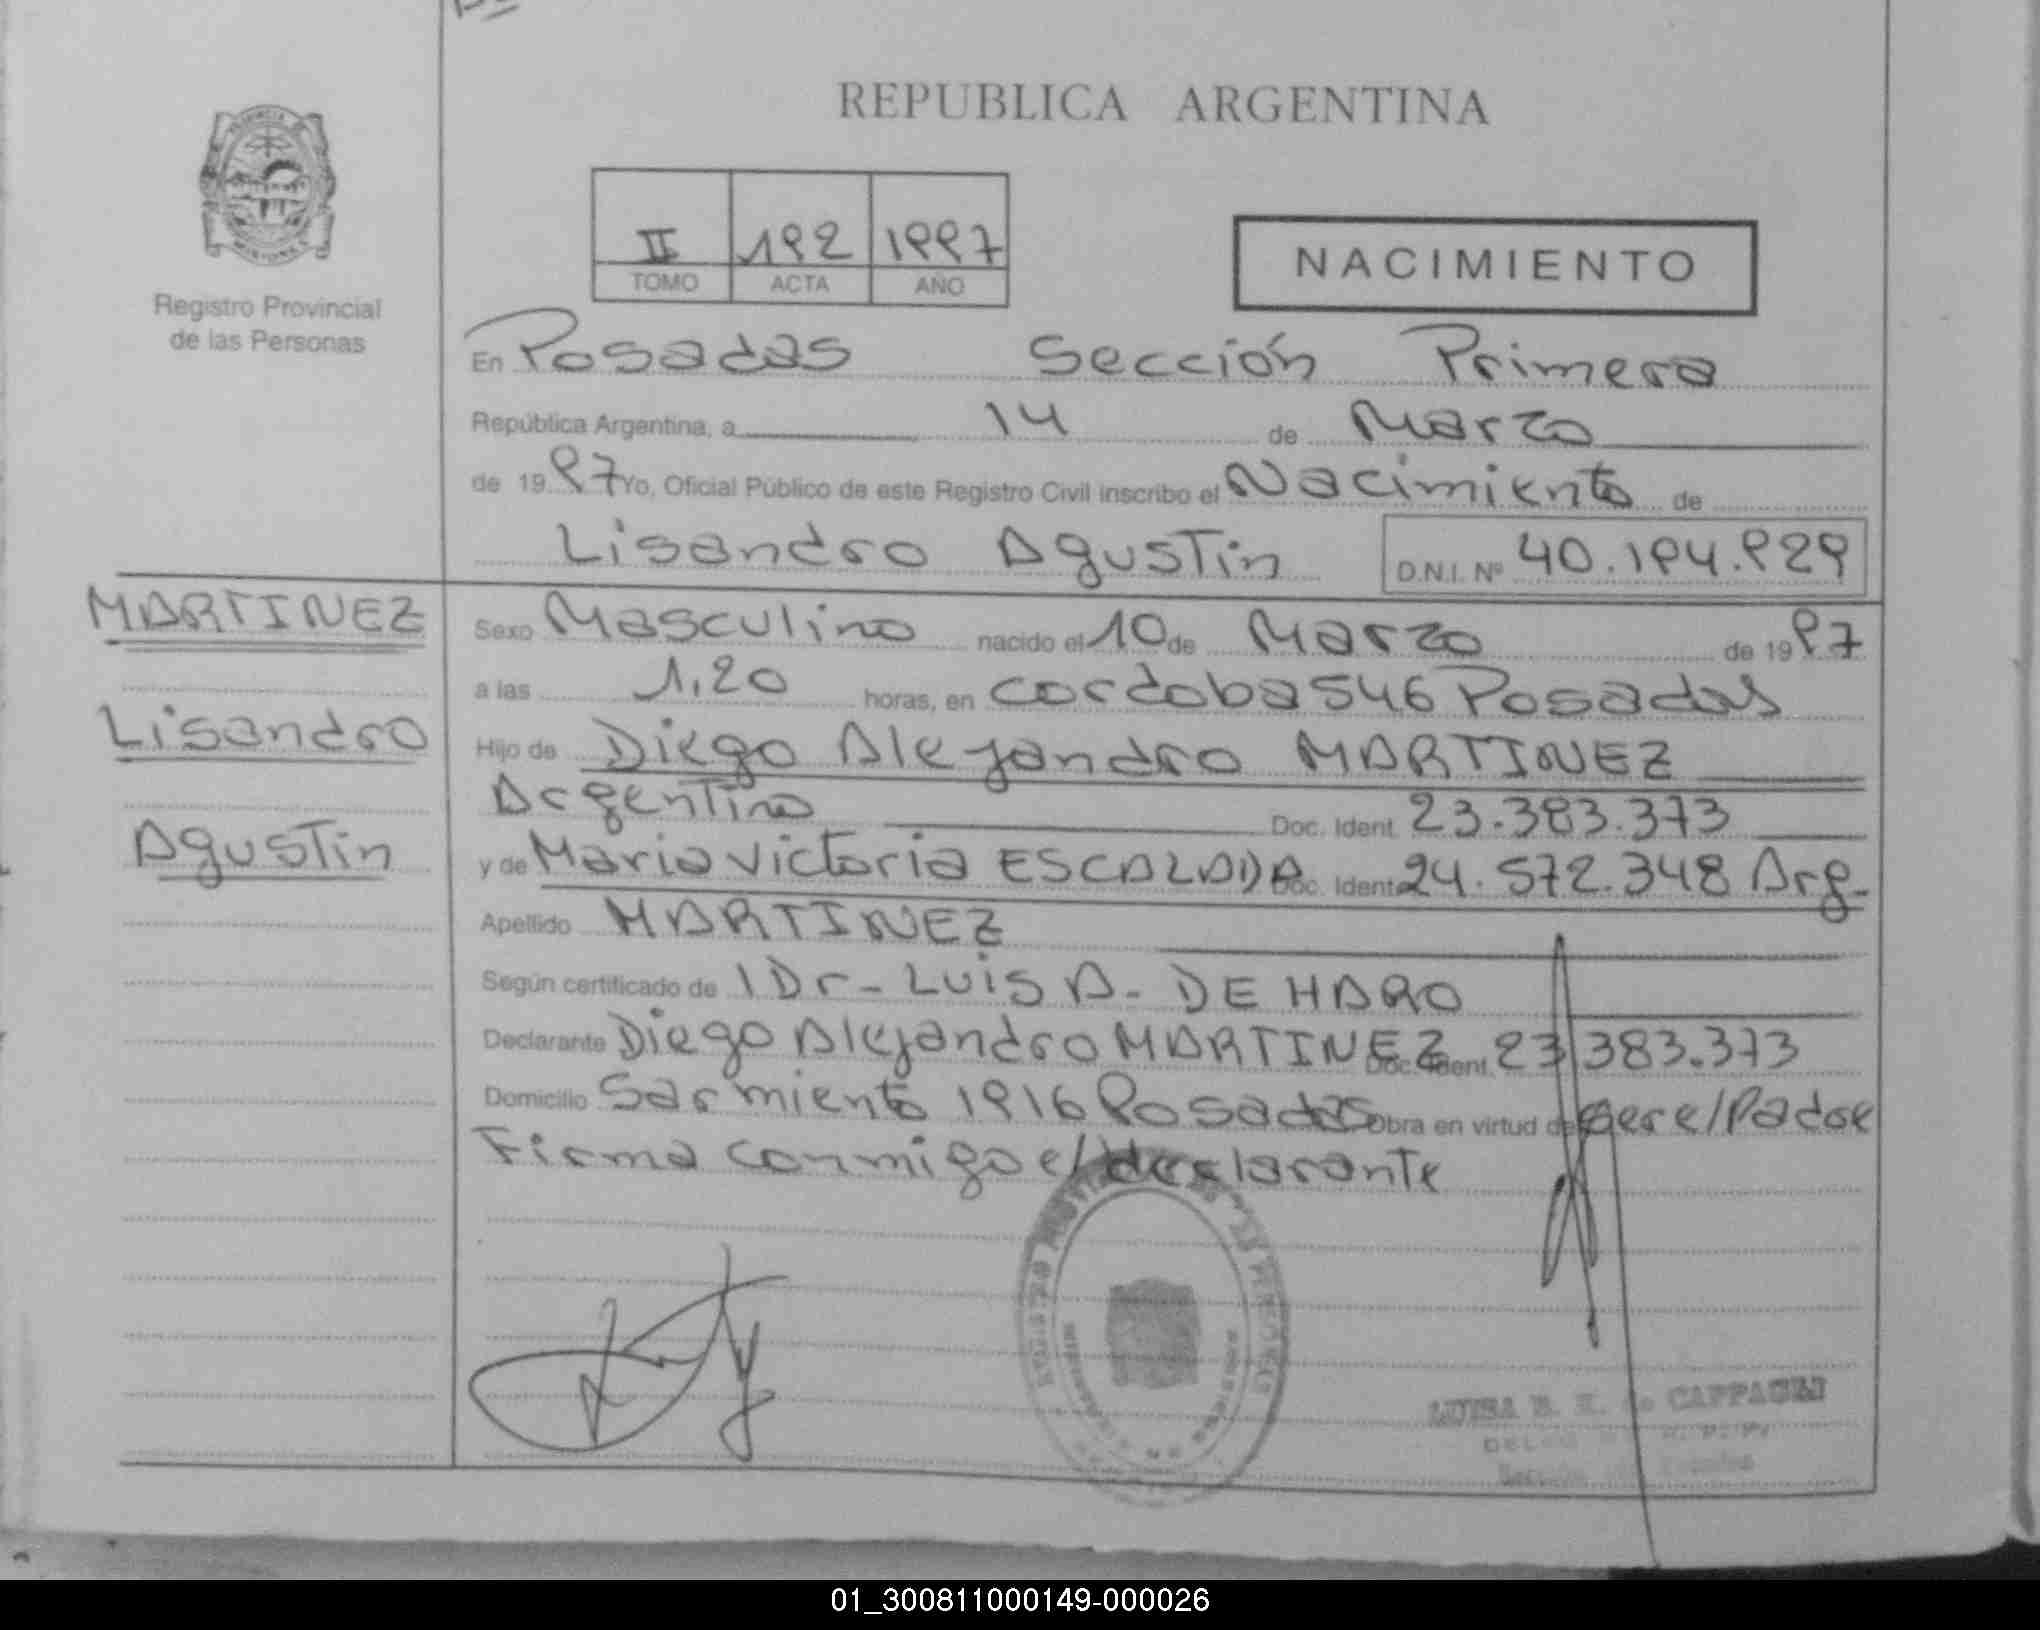 REPUBLICA ARGENTINA
II 192 1997
TOMO ACTA AÑO
NACIMIENTO
Registro Provincial
de las Personas
En Posadas Sección Primera
República Argentina, a 14 de Marzo
de 1997 Yo, Oficial Público de este Registro Civil inscribo el Nacimiento de
Lisandro Agustin D.N.I. Nº 40.194.929
MARTINEZ
Lisandro
Agustin
Sexo Masculino nacido el 10 de Marzo de 1997
a las 1,20 horas, en cordoba 546 Posadas
Hijo de Diego Alejandro MARTINEZ
Argentino Doc. Ident. 23.383.373
y de Maria Victoria ESCALADA Doc. Ident. 24.572.348 Arg.
Apellido MARTINEZ
Según certificado de l Dr- Luis A. DE HARO
Declarante Diego Alejandro MARTINEZ Doc. Ident. 23.383.373
Domicilio Sarmiento 1916 Posadas Obra en virtud de Sere/Padre
Firma conmigo e/declarante
LUISA CAPPAGLI
01_300811000149-000026